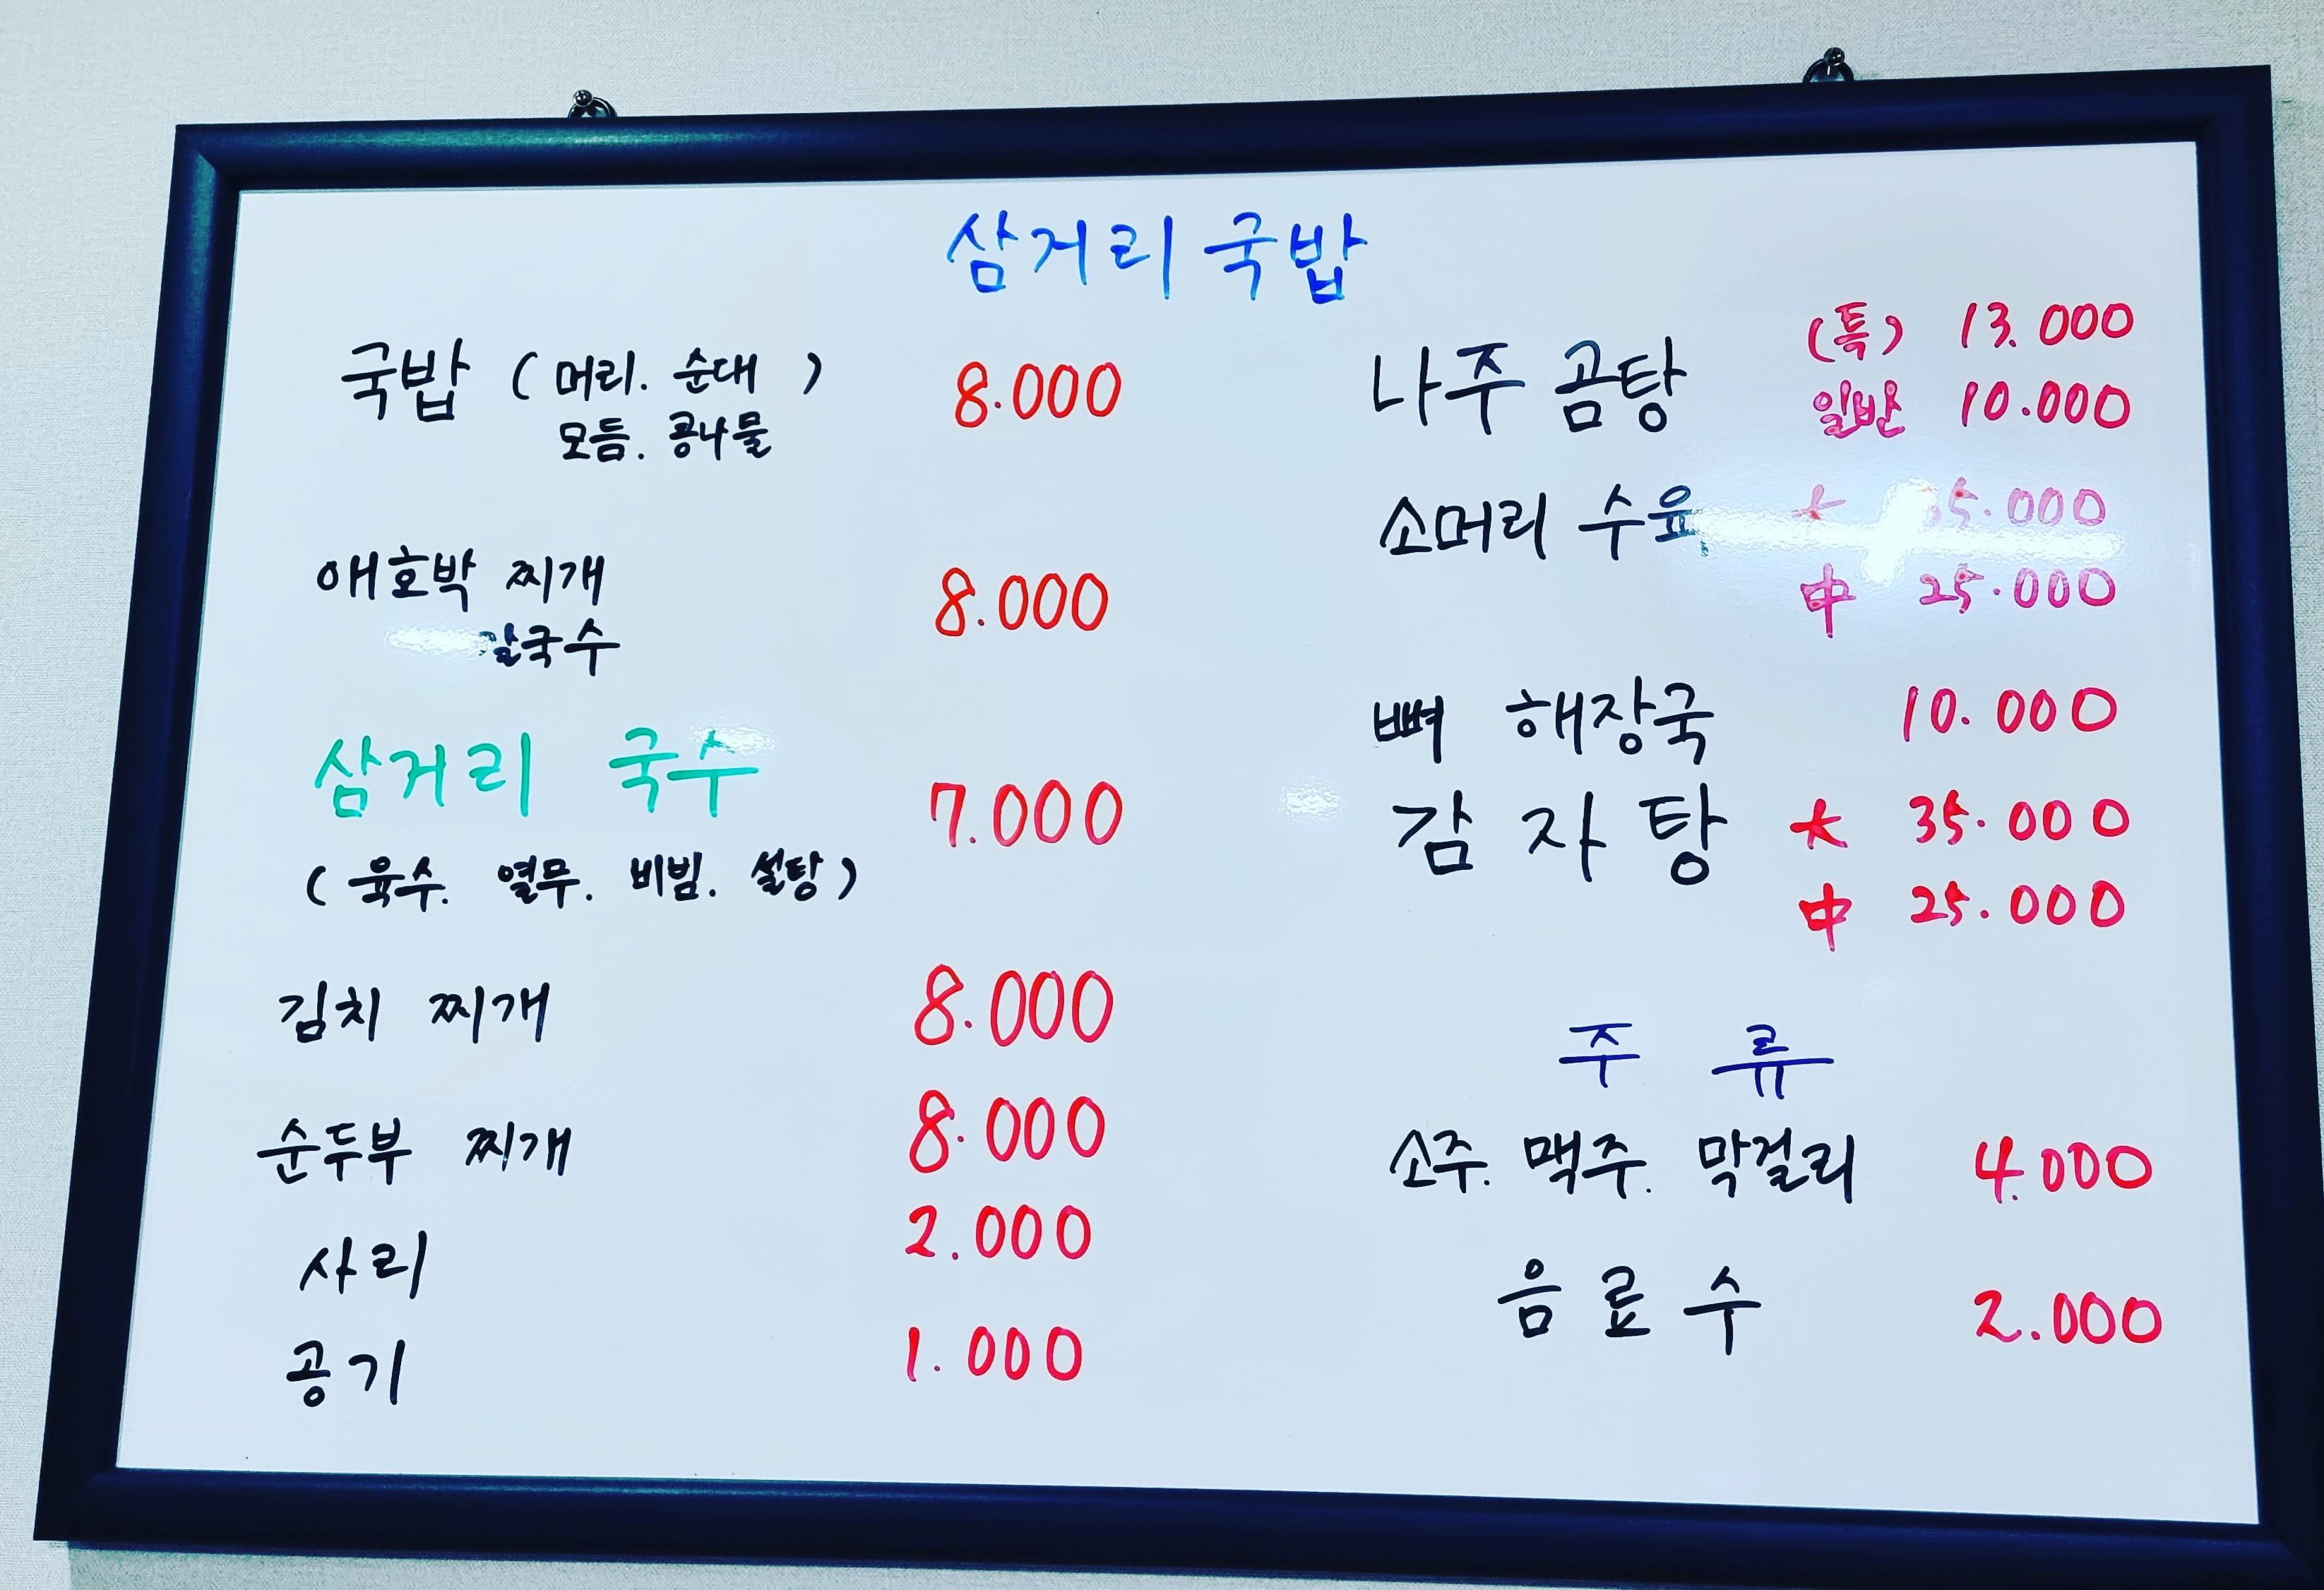 삼거리 국밥
국밥 (머리. 순대) 8.000
모듬. 콩나물
애호박 찌개 8.000
칼국수
삼거리 국수 7.000
(육수. 열무. 비빔. 설탕)
김치 찌개 8.000
순두부 찌개 8.000
사리 2.000
공기 1.000
나주 곰탕 (특) 13.000
일반 10.000
소머리 수육 大
中 25.000
뼈 해장국 10.000
감자탕 大 35.000
中 25.000
주류
소주. 맥주. 막걸리 4.000
음료수 2.000